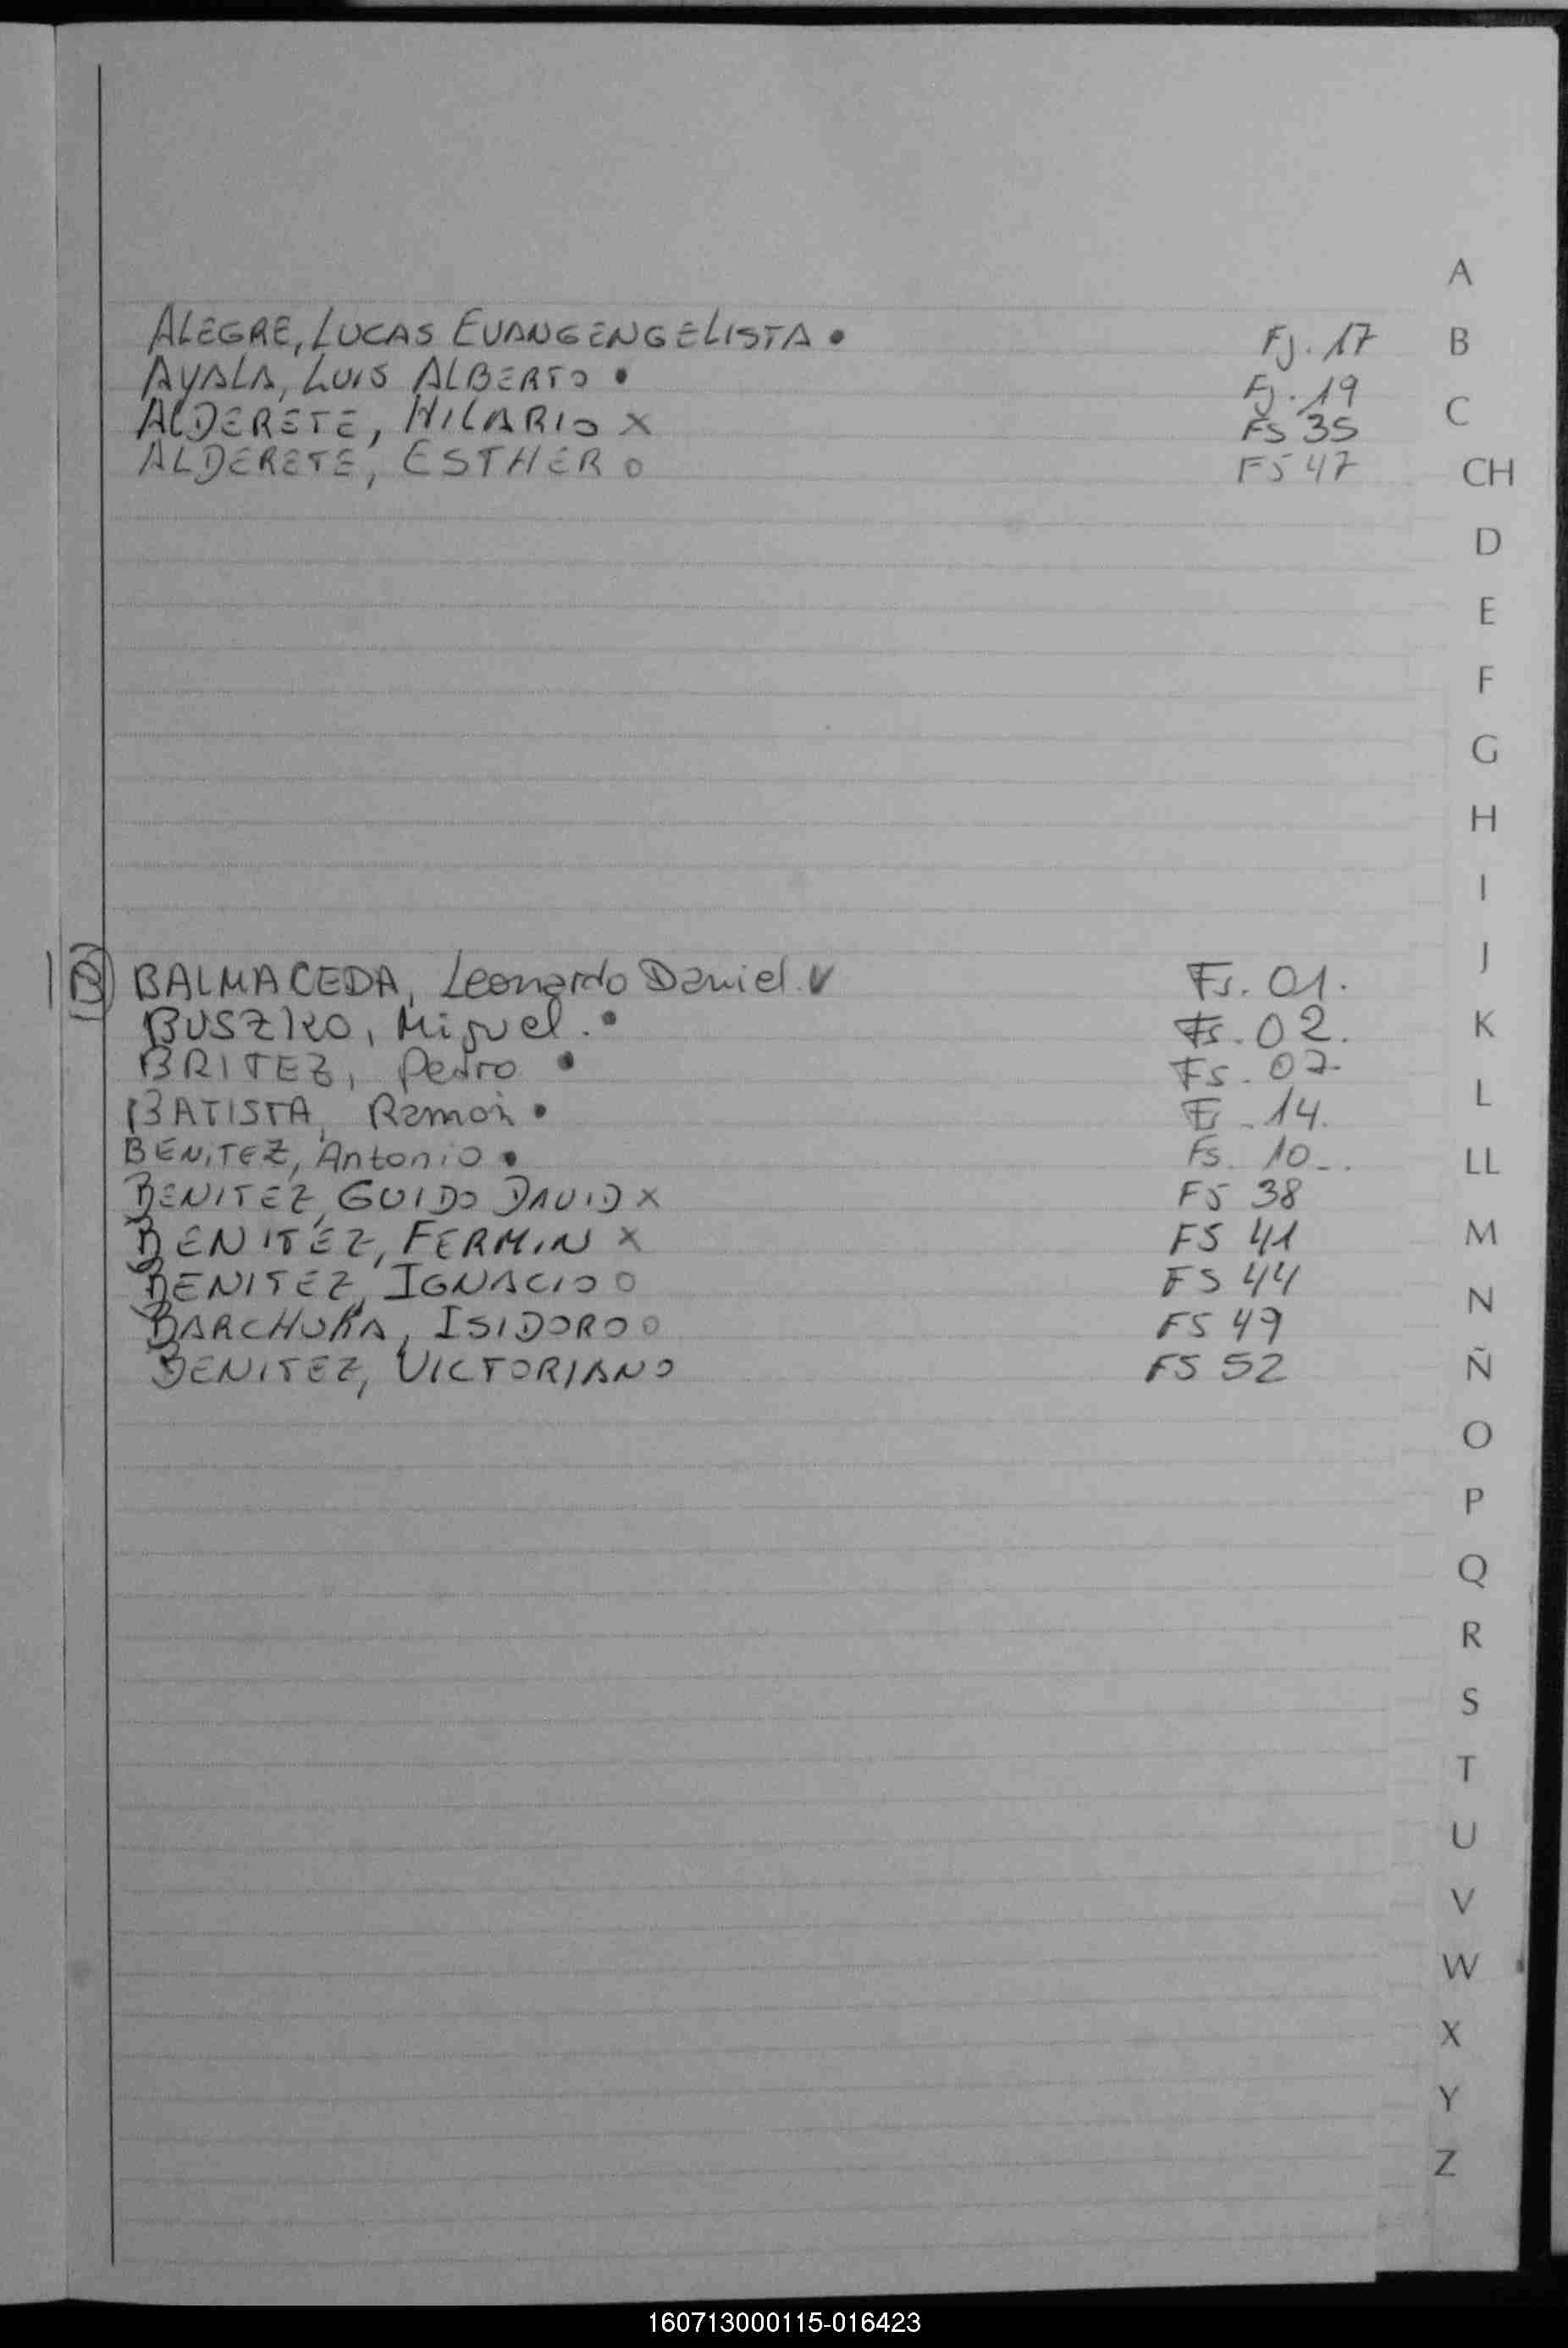 ALEGRE, LUCAS EVANGENGELISTA • Fj. 17
AYALA, LUIS ALBERTO • Fj. 19
ALDERETE, HILARIO X FS 35
ALDERETE, ESTHER o FS 47
B BALMACEDA, Leonardo Daniel. v Fs. 01.
BUSZKO, Miguel. • Fs. 02.
BRITEZ, Pedro • Fs. 07-
BATISTA, Ramón • Fs - 14.
BENITEZ, Antonio • Fs. 10-.
BENITEZ, GUIDO DAVID X FS 38
BENITEZ, FERMIN X FS 41
BENITEZ, IGNACIO o FS 44
BARCHUKA, ISIDORO o FS 49
BENITEZ, VICTORIANO FS 52
A
B
C
CH
D
E
F
G
H
I
J
K
L
LL
M
N
Ñ
O
P
Q
R
S
T
U
V
W
X
Y
Z
160713000115-016423